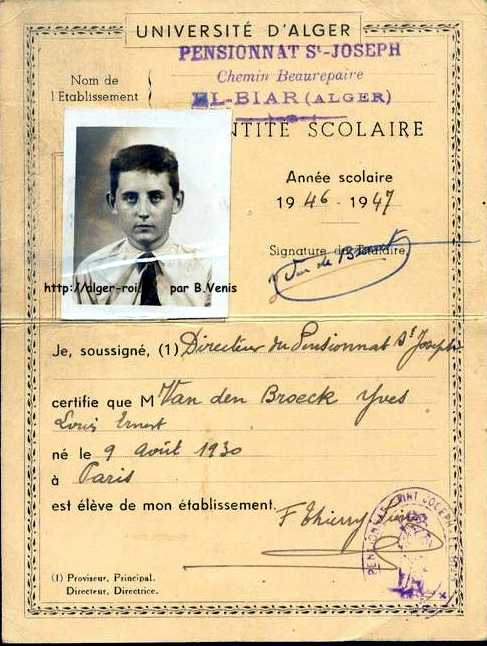 UNIVERSITÉ D'ALGER
PENSIONNAT St-JOSEPH
Chemin Beaurepaire
EL-BIAR (ALGER)
Nom de
l'Etablissement
NTITÉ SCOLAIRE
Année scolaire
1946 - 1947
Signature du Titulaire,
http://alger-roi par B.Venis
Je, soussigné, (1) Directeur du Pensionnat St Joseph
certifie que M Van den Broeck Yves
Louis Ernest
né le 9 août 1930
à Paris
est élève de mon établissement.
F Thierry
PENSIONNAT SAINT JOSEPH
(1) Proviseur, Principal.
Directeur, Directrice.